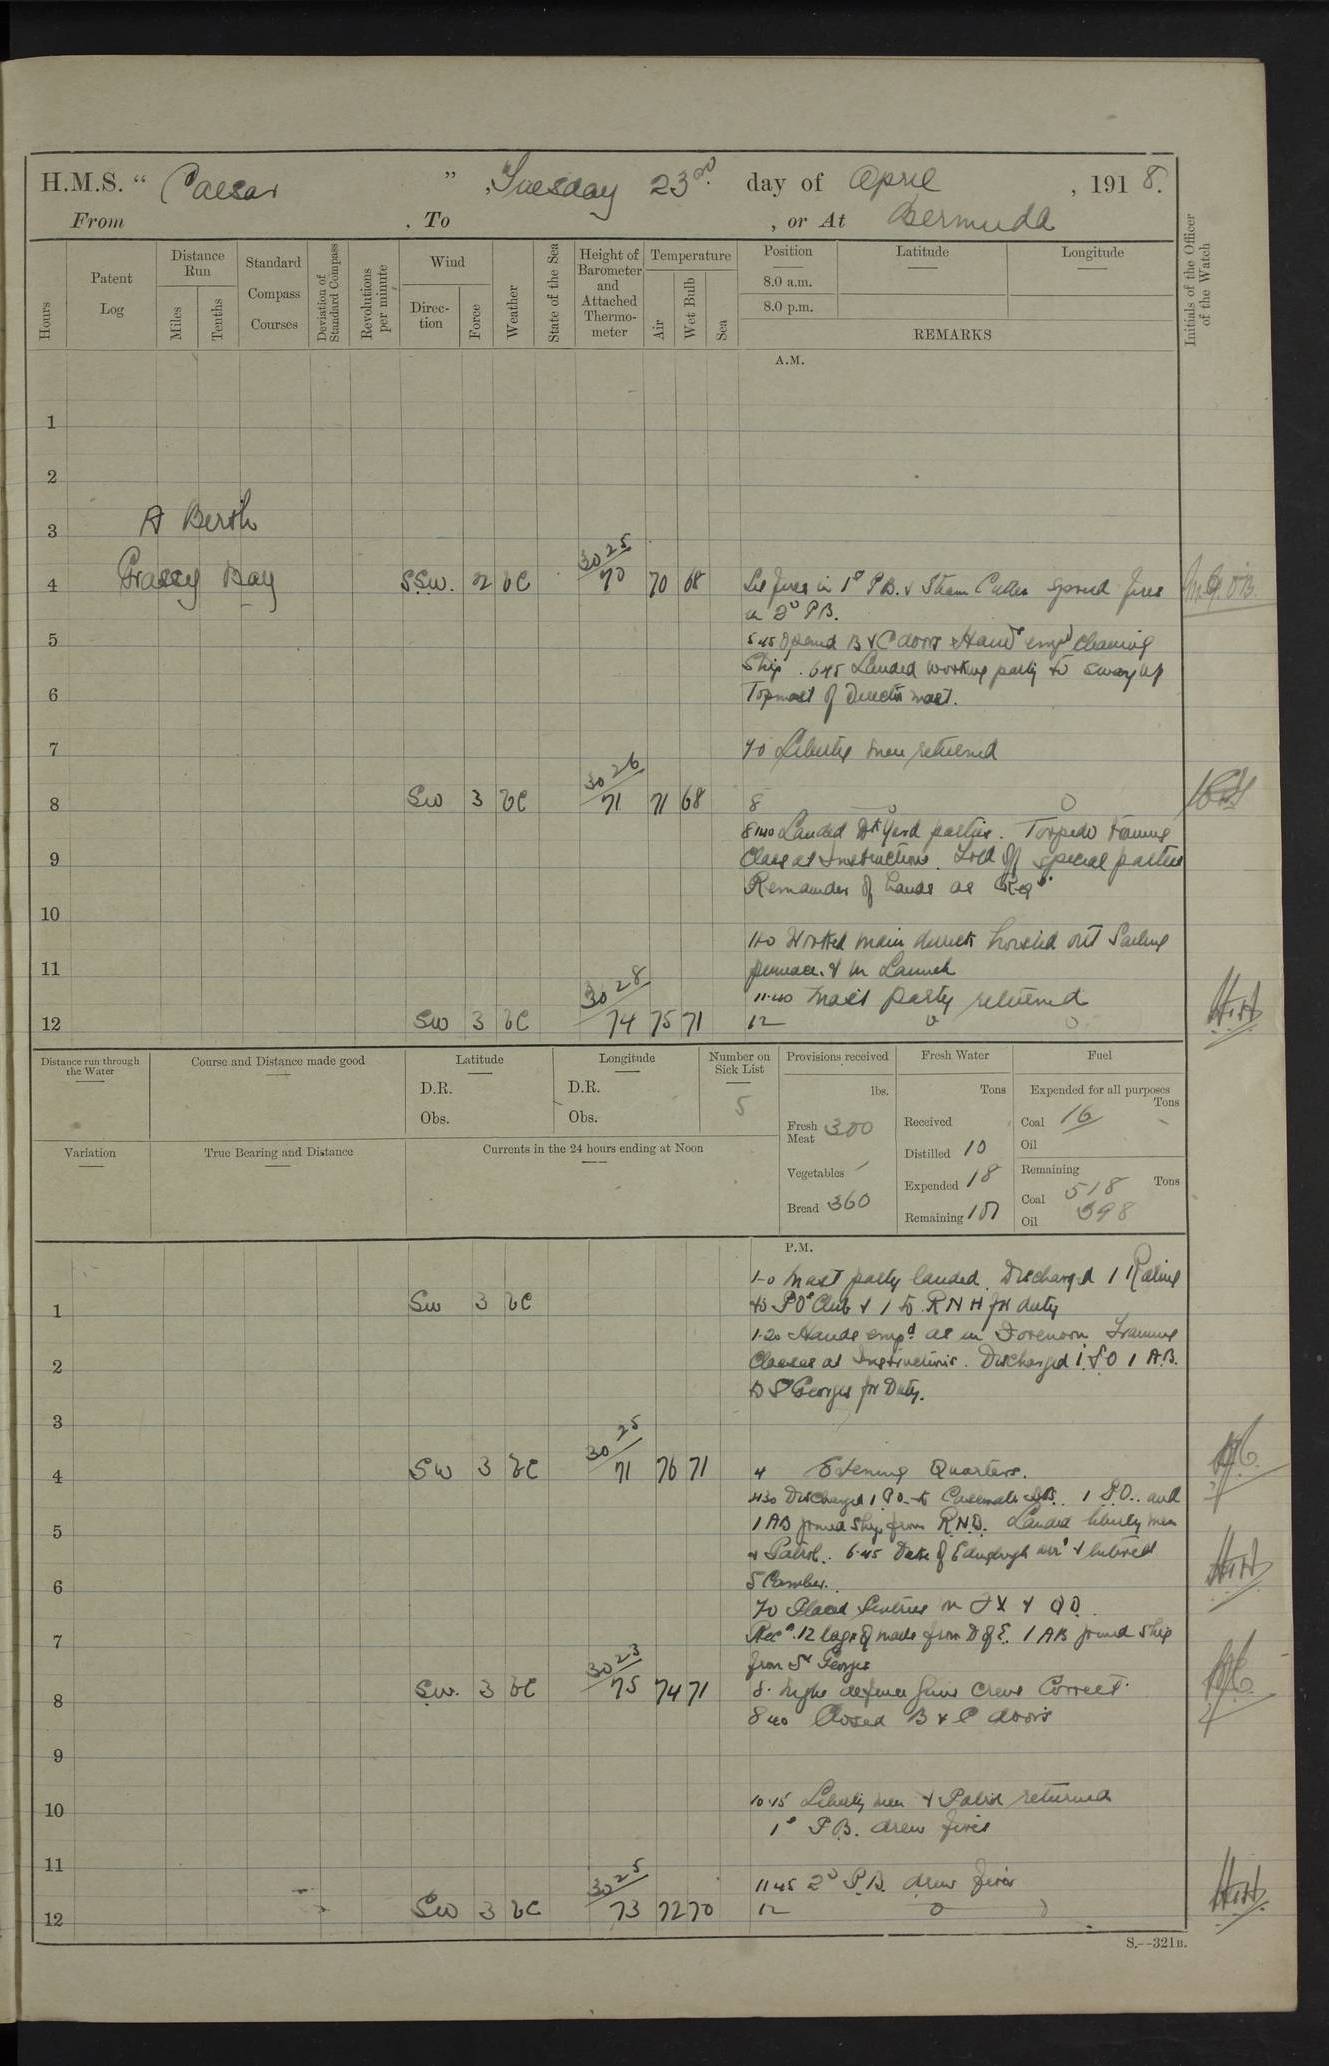 H.M.S. “ Caesar ” , Tuesday 23rd day of April , 1918.
From , To , or At Bermuda
Hours
Patent Log
Distance Run
Miles
Tenths
Standard Compass Courses
Deviation of Standard Compass
Revolutions per minute
Wind
Direction
Force
Weather
State of the Sea
Height of Barometer and Attached Thermometer
Temperature
Air
Wet Bulb
Sea
Position
8.0 a.m.
8.0 p.m.
Latitude
Longitude
REMARKS
Initials of the Officer of the Watch
A.M.
1
2
3 A Berth
4 Grassy Bay SSW. 2 bc 30 25 / 70 70 68 Lit fires in 1st P.B. & Steam Cutter spread fires
in 2d PB.
5 5.45 Opened B & C doors Hands empd cleaning
Ship. 6.45 Landed working party to sway up
6 Topmast of Director mast.
7 7.0 Liberty men returned
8 SW 3 bc 30 26 / 71 71 68 8 0 0
8.40 Landed Dk Yard parties. Torpedo training
9 Class at Instruction. Told off special parties
Remainder of hands as Req.
10
11.0 Worked main derrick hoisted out Sailing
11 pinnace & in Launch
11.40 Mast party returned
12 SW 3 bc 30 28 / 74 75 71 12 0 0
Distance run through the Water
Course and Distance made good
Latitude
D.R.
Obs.
Longitude
D.R.
Obs.
Number on Sick List
5
Provisions received
lbs.
Fresh Meat 300
Vegetables /
Bread 360
Fresh Water
Tons
Received
Distilled 10
Expended 18
Remaining 101
Fuel
Expended for all purposes
Tons
Coal 16
Oil
Remaining
Tons
Coal 518
Oil 398
Variation
True Bearing and Distance
Currents in the 24 hours ending at Noon
P.M.
1.0 Mast party landed. Discharged 1 Rating
1 SW 3 bc to P.O's Club & 1 to R N H for duty
1.20 Hands empd as in Forenoon Training
2 Classes at Instructions. Discharged 1 S.O 1 A.B.
to St Georges for Duty.
3
4 SW 3 bc 30 25 / 71 76 71 4 Evening Quarters.
4.30 Discharged 1 P.O. to Casemate Bks. 1 P.O. and
5 1 AB joined ship from R.N.D. Landed liberty men
& Patrol. 6.45 Duke of Edinburgh arrd & entered
6 S Camber.
7.0 Placed Sentries on FX & QD
7 Recd 12 bags of mails from D of E. 1 AB joined ship
from St Georges
8 SW. 3 bc 30 23 / 75 74 71 8. Night defence Guns Crews Correct.
8.40 Closed B & C doors
9
10 10.45 Liberty men & Patrol returned
1st P.B. drew fires
11
11.45 2d P.B. drew fires
12 SW 3 bc 30 25 / 73 72 70 12 0
S.—321B.